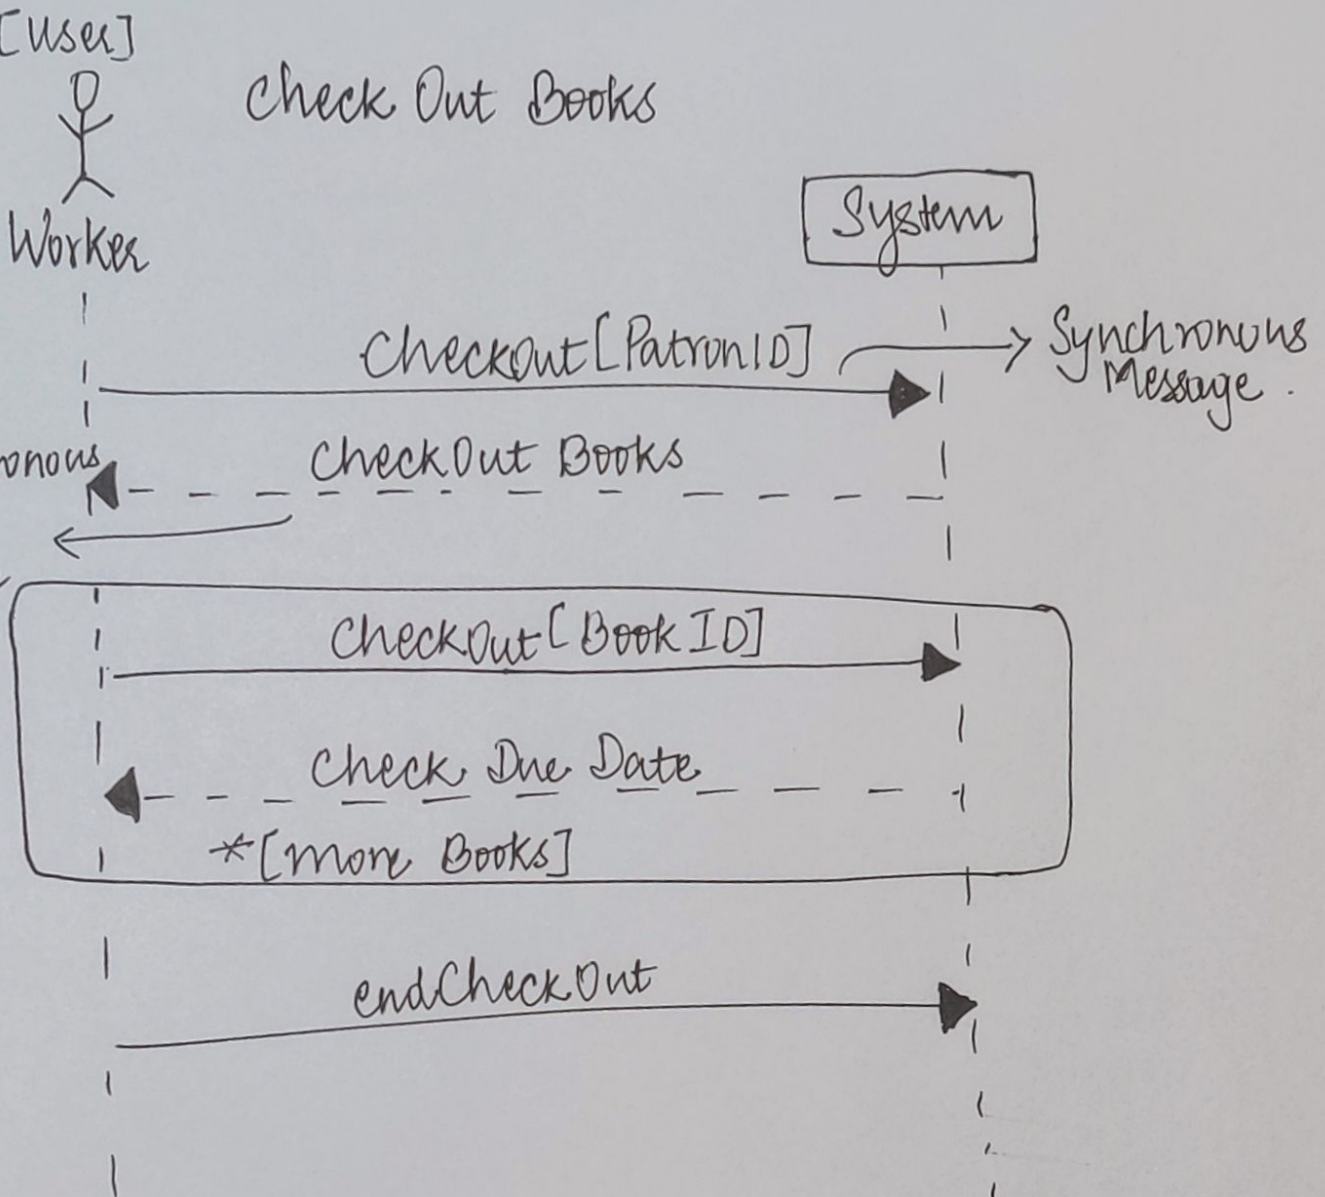 [User]
Check Out Books
System
Worker
CheckOut[PatronID]
Synchronous
Message.
CheckOut Books
CheckOut[Book ID]
Check Due Date
*[More Books]
endCheckOut